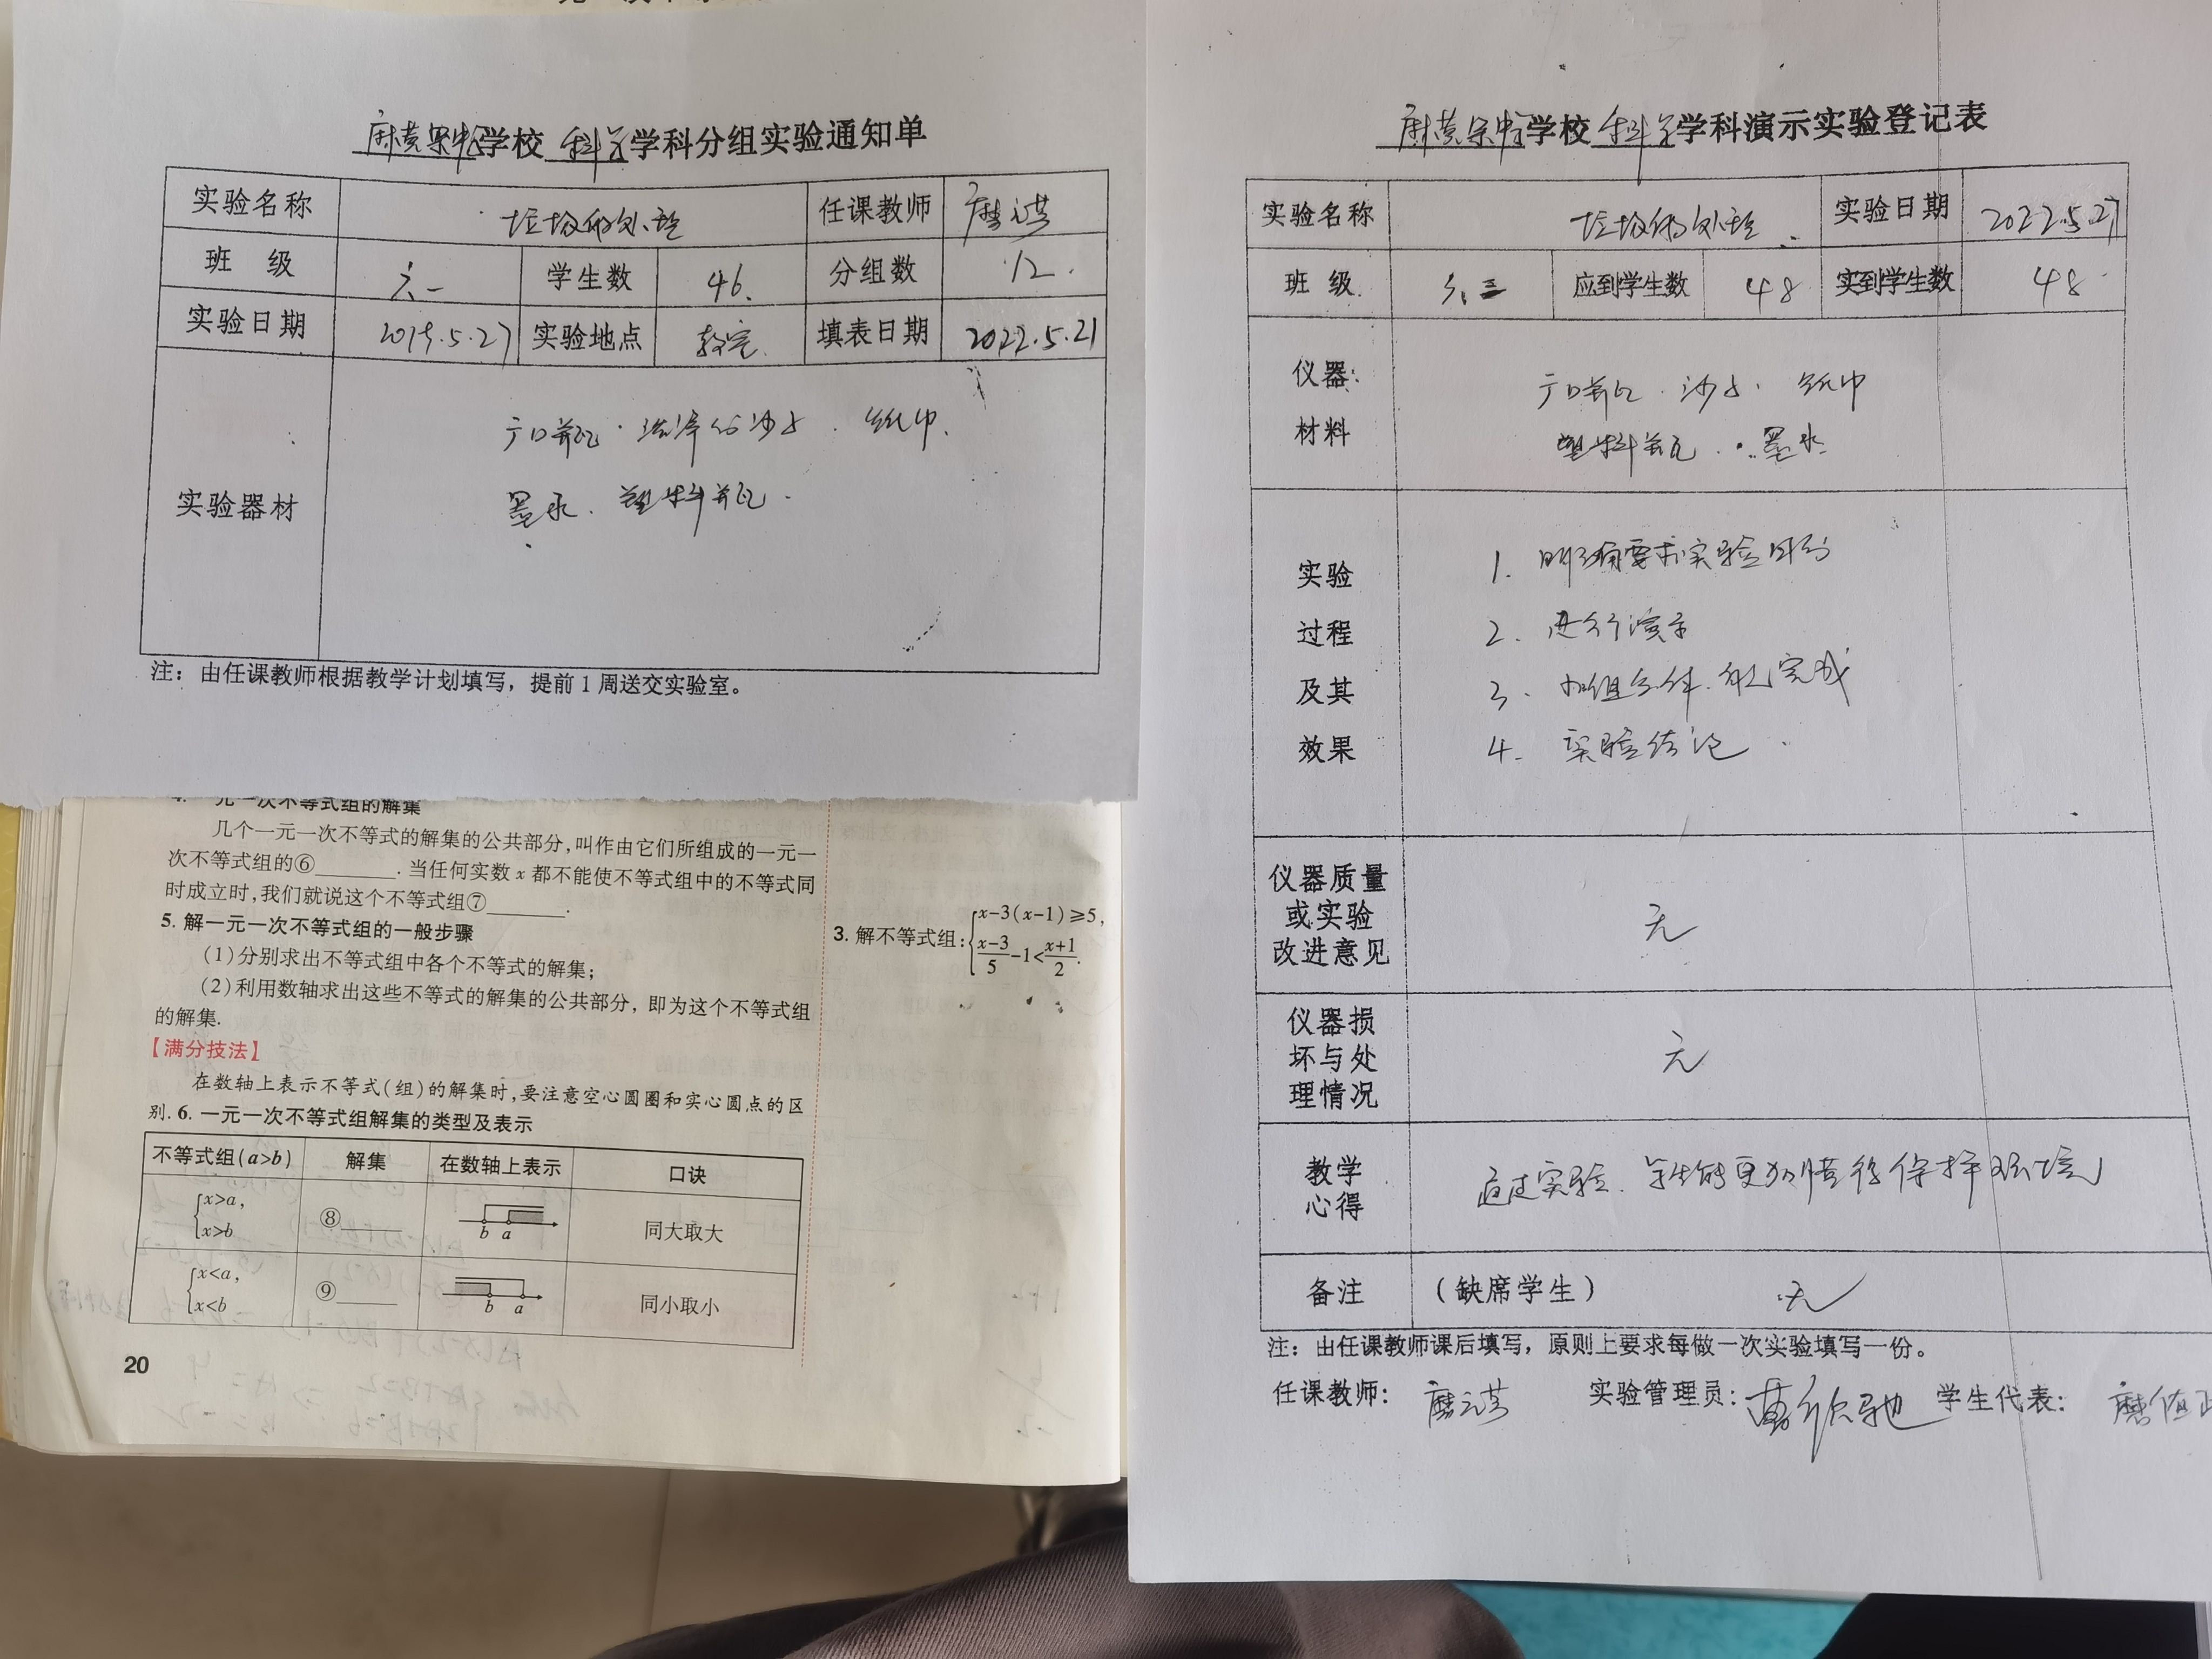 学校 科学 学科分组实验通知单
实验名称 垃圾的处理 任课教师
班 级 六一 学生数 46 分组数 12
实验日期 5.27 实验地点 教室 填表日期 2022.5.21
实验器材
广口瓶 洁净的沙子 纸巾
墨水 塑料瓶
注：由任课教师根据教学计划填写，提前1周送交实验室。
4. 一元一次不等式组的解集
几个一元一次不等式的解集的公共部分,叫作由它们所组成的一元一
次不等式组的⑥______. 当任何实数 x 都不能使不等式组中的不等式同
时成立时,我们就说这个不等式组⑦______.
5. 解一元一次不等式组的一般步骤
(1)分别求出不等式组中各个不等式的解集;
(2)利用数轴求出这些不等式的解集的公共部分, 即为这个不等式组
的解集.
【满分技法】
在数轴上表示不等式(组)的解集时,要注意空心圆圈和实心圆点的区
别. 6. 一元一次不等式组解集的类型及表示
不等式组(a>b) 解集 在数轴上表示 口诀
x>a,
x>b
⑧______ b a 同大取大
x<a,
x<b
⑨______ b a 同小取小
20
3. 解不等式组: x-3(x-1)≥5,
x-3/5 -1< x+1/2.
学校 科学 学科演示实验登记表
实验名称 垃圾的处理 实验日期 2022.5.27
班 级 应到学生数 48 实到学生数 48
仪器
材料
广口瓶 沙子 纸巾
塑料瓶 墨水
实验
过程
及其
效果
1. 明确要求实验目的
2. 进行演示
3. 完成
4. 实验结论
仪器质量
或实验
改进意见
无
仪器损
坏与处
理情况
无
教学
心得
通过实验 学生能更加懂得保护环境
备注 (缺席学生) 无
注：由任课教师课后填写，原则上要求每做一次实验填写一份。
任课教师： 实验管理员： 学生代表：